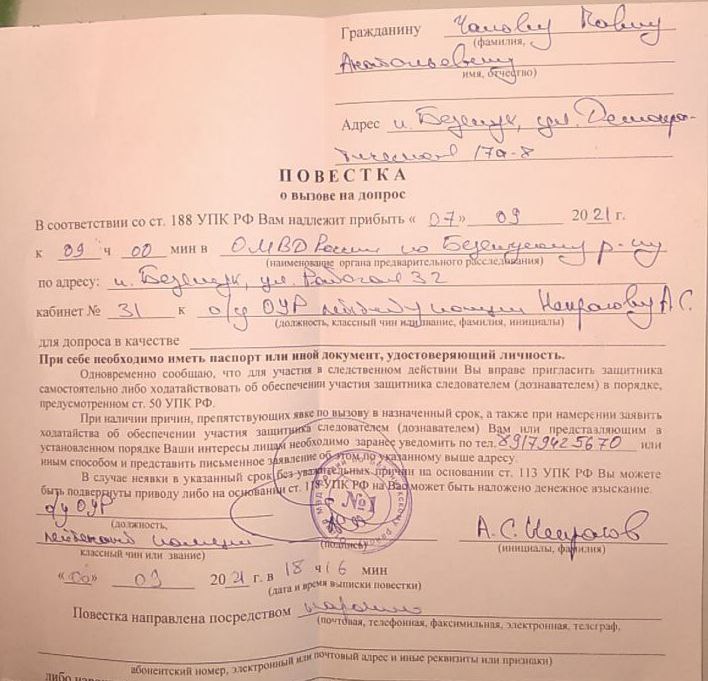 Гражданину Чапову Павлу
(фамилия,
Анатольевичу
имя, отчество)
Адрес п. Безенчук, ул. Демокра-
тическая 17а-8
ПОВЕСТКА
о вызове на допрос
В соответствии со ст. 188 УПК РФ Вам надлежит прибыть « 07» 09 2021 г.
к 09 ч 00 мин в ОМВД России по Безенчукскому р-ну
(наименование органа предварительного расследования)
по адресу: п. Безенчук, ул. Рабочая 32
кабинет № 31 к о/у ОУР лейтенанту полиции Некрасову А.С.
(должность, классный чин или звание, фамилия, инициалы)
для допроса в качестве
При себе необходимо иметь паспорт или иной документ, удостоверяющий личность.
Одновременно сообщаю, что для участия в следственном действии Вы вправе пригласить защитника
самостоятельно либо ходатайствовать об обеспечении участия защитника следователем (дознавателем) в порядке,
предусмотренном ст. 50 УПК РФ.
При наличии причин, препятствующих явке по вызову в назначенный срок, а также при намерении заявить
ходатайства об обеспечении участия защитника следователем (дознавателем) Вам или представляющим в
установленном порядке Ваши интересы лицам необходимо заранее уведомить по тел. 89179425670 или
иным способом и представить письменное заявление об этом по указанному выше адресу.
В случае неявки в указанный срок без уважительных причин на основании ст. 113 УПК РФ Вы можете
быть подвергнуты приводу либо на основании ст. 118 УПК РФ на Вас может быть наложено денежное взыскание.
о/у ОУР
(должность,
лейтенант полиции
классный чин или звание)
№1
(подпись)
А.С. Некрасов
(инициалы, фамилия)
09 2021 г. в 18 ч 16 мин
(дата и время выписки повестки)
Повестка направлена посредством нарочно
(почтовая, телефонная, факсимильная, электронная, телеграф,
абонентский номер, электронный или почтовый адрес и иные реквизиты или признаки)
либо